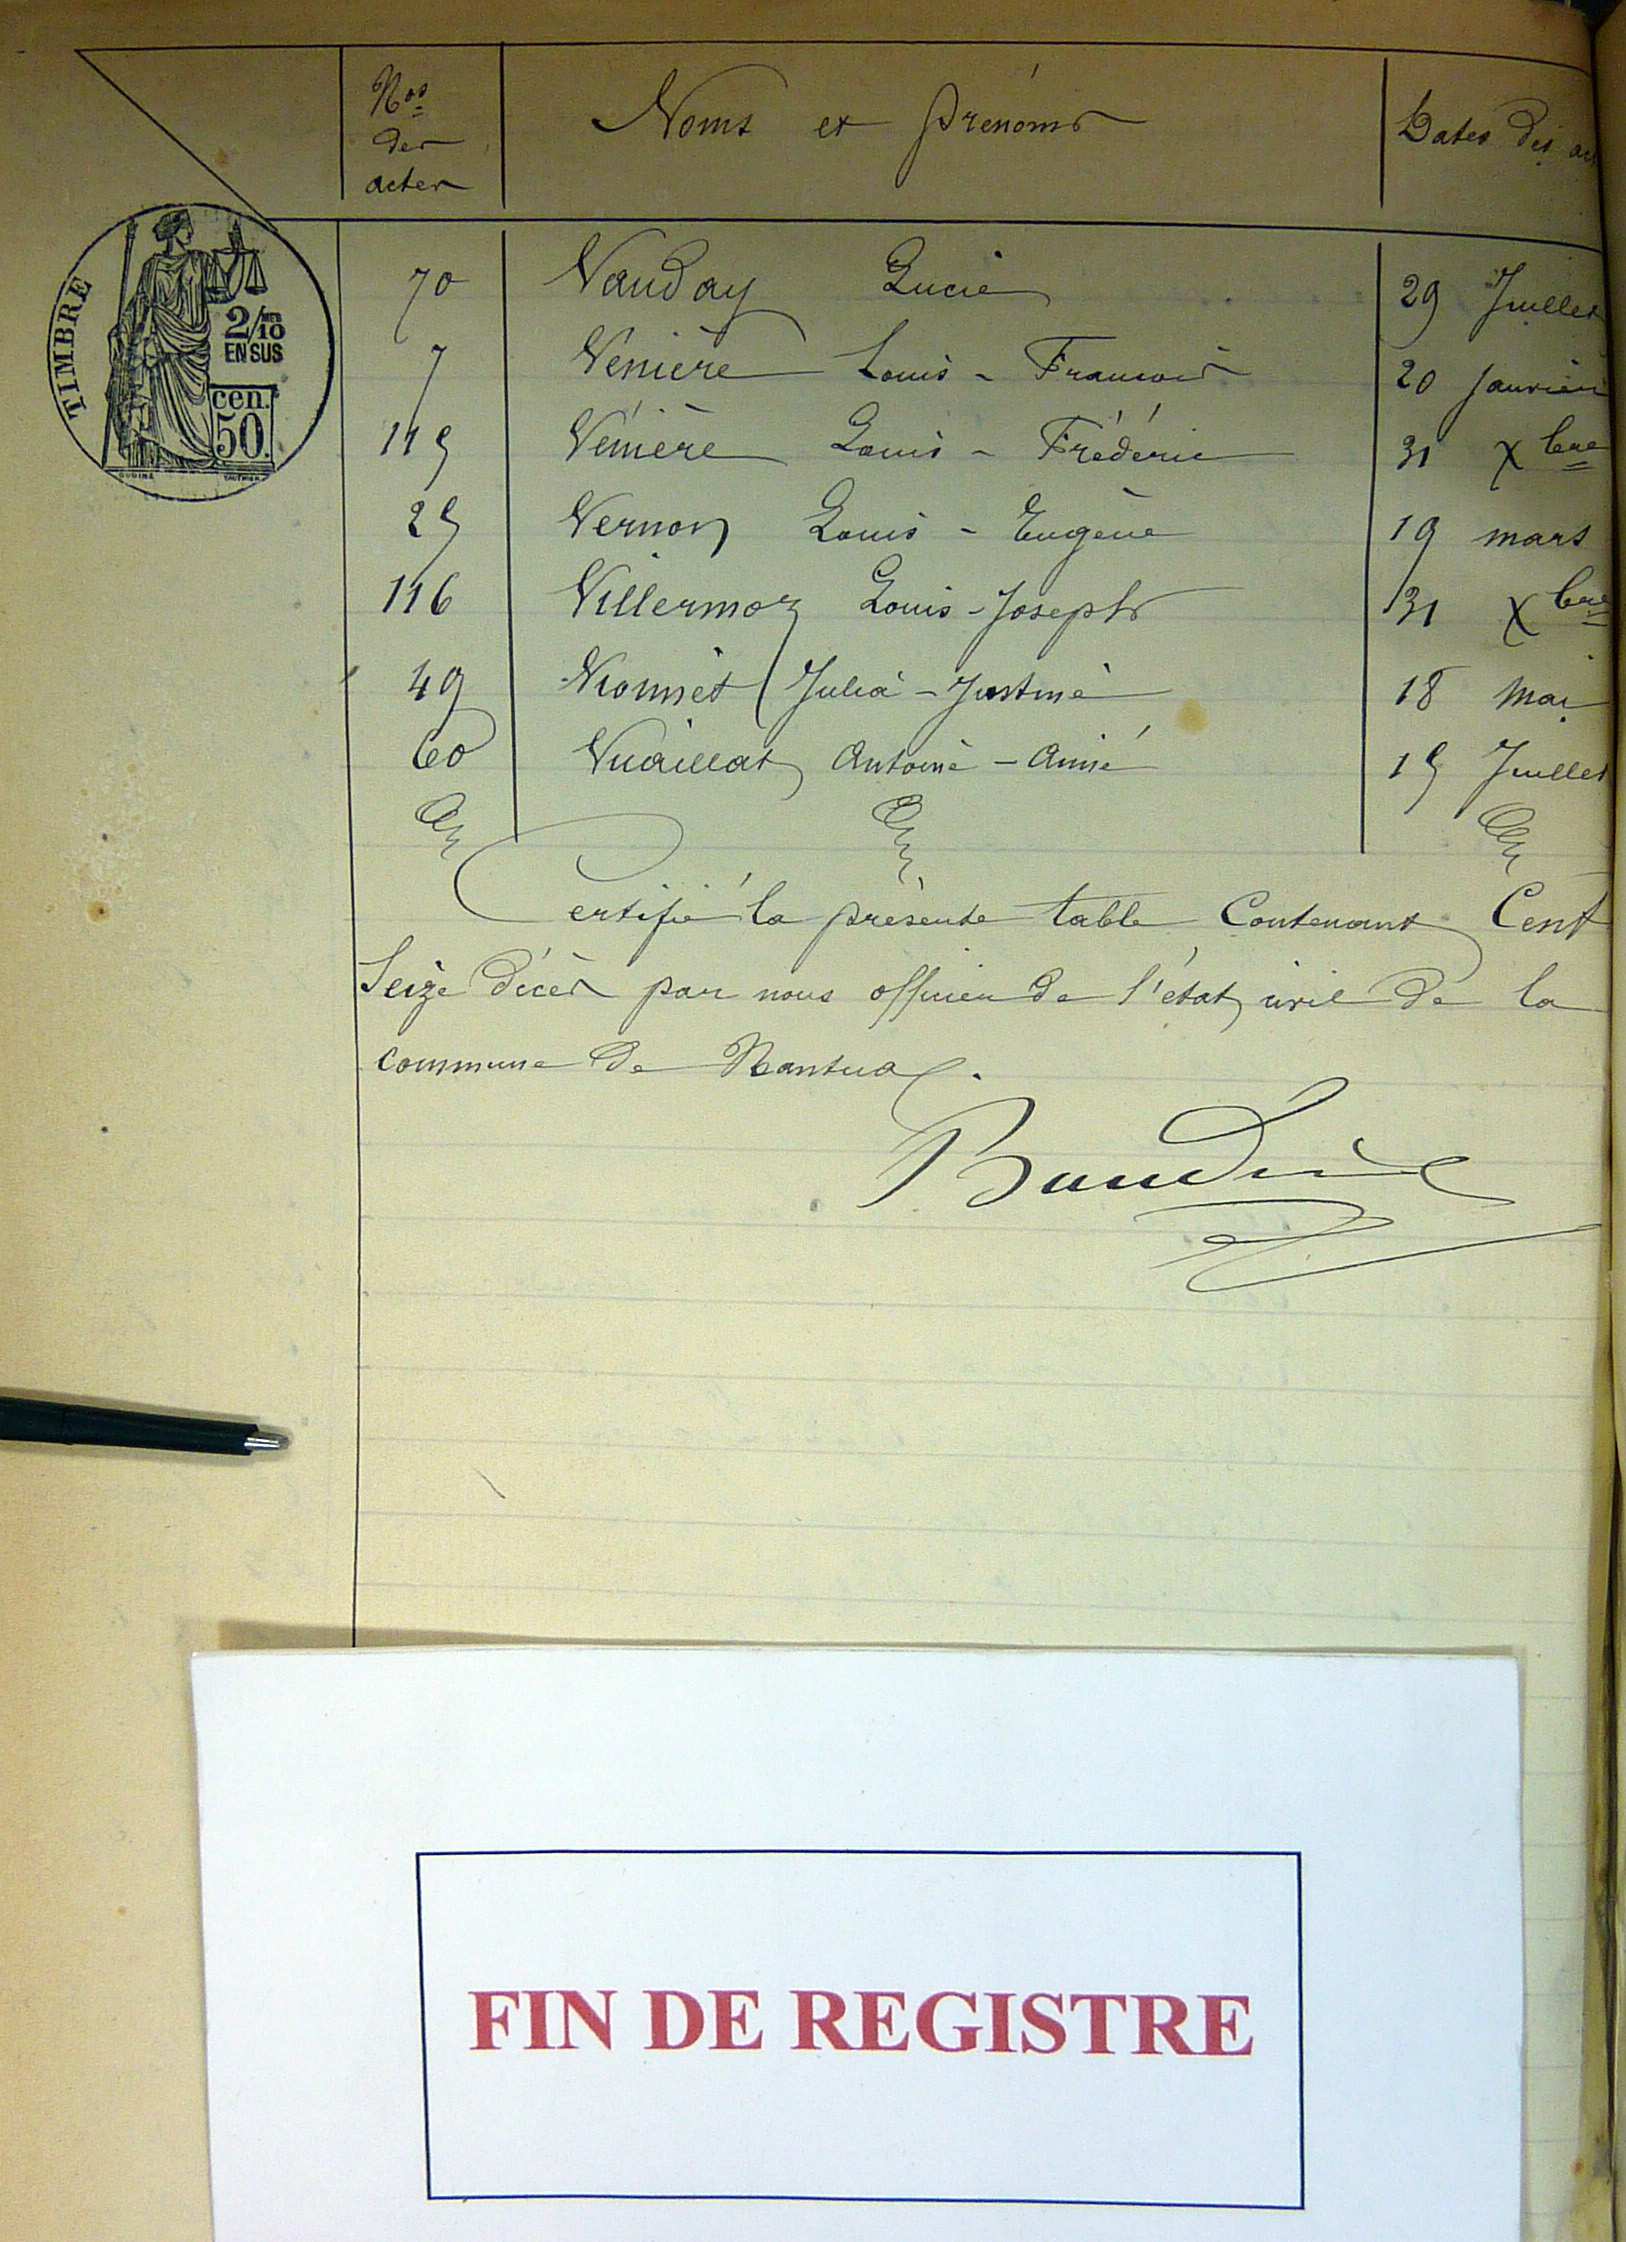 Nos
des
actes
Noms et prénoms
Dates des ac
TIMBRE
2/10
EN SUS
cen.
50.
70 Vauday Lucie 29 Juillet
7 Venière Louis - Francois 20 Janvier
115 Vénière Louis - Frédéric 31 Xbre
25 Vernon Louis - Eugène 19 mars
116 Villermoz Louis - Joseph 31 Xbre
49 Vionnet Julia - Justine 18 Mai
60 Vuaillat Antoine - Aimé 15 Juillet
Certifié la présente table Contenant Cent
Seize décès par nous officier de l'état civil de la
commune de Nantua.
FIN DE REGISTRE